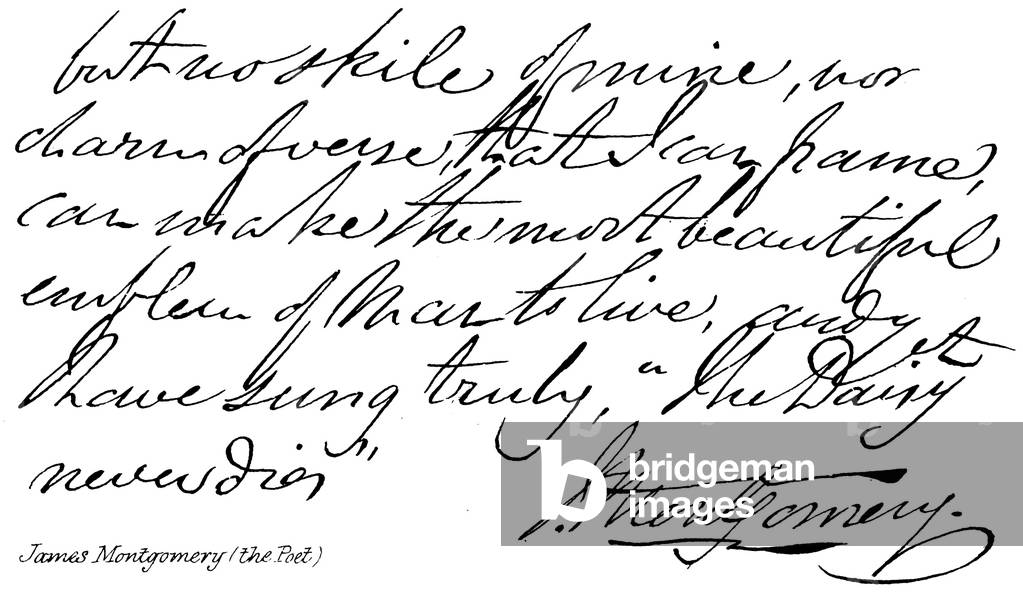 but no skill of mine, nor
charm of verse, that I can frame,
can make the most beautiful
emblem of Man to live, and yet
I have sung truly, "The Daisy
never dies"
J. Montgomery.
bridgeman
images
James Montgomery (the Poet)